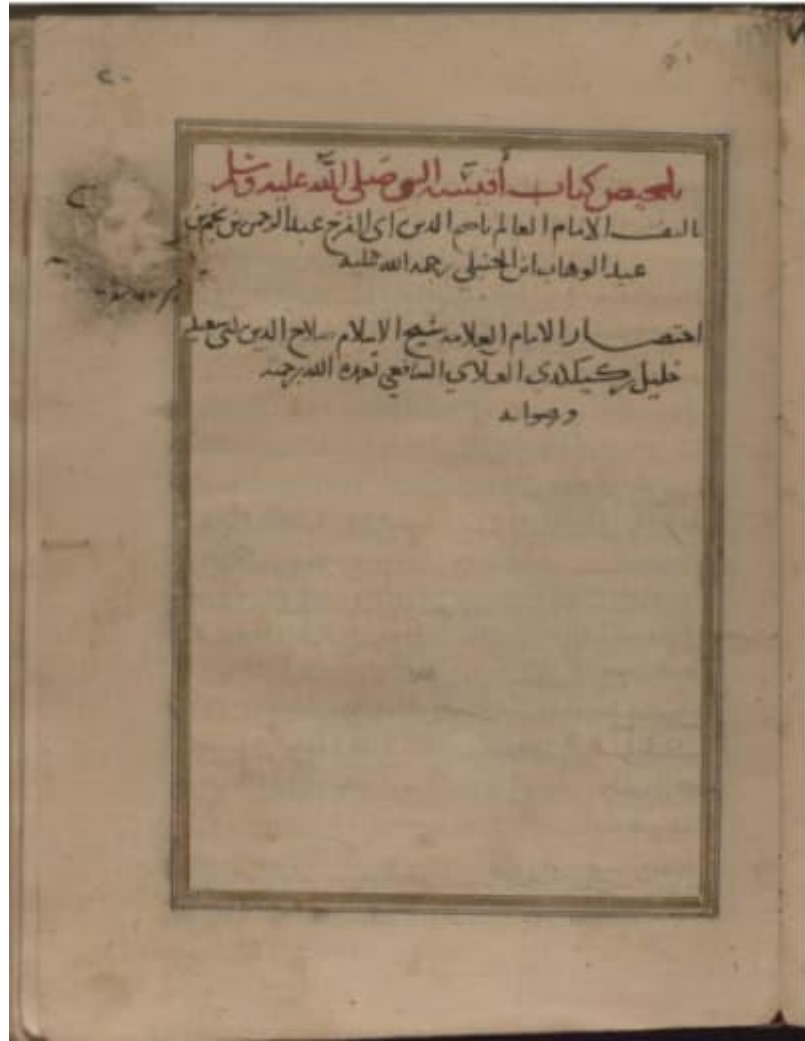 تلخيص كتاب أقيسة النبي صلى الله عليه وسلم
تاليف الامام العالم ناصح الدين ابى الفرج عبد الرحمن بن نجم بن
عبد الوهاب ابن الحنبلي رحمه الله عليه
اختصار الامام العلامه شيخ الاسلام صلاح الدين ابى سعيد
خليل بن كيكلدى العلاى الشافعي تغمده الله برحمته
ورضوانه